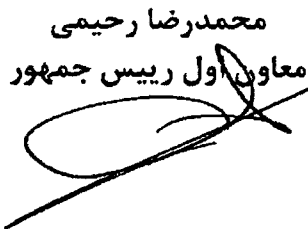 محمدرضا رحیمی
معاون اول رییس جمهور